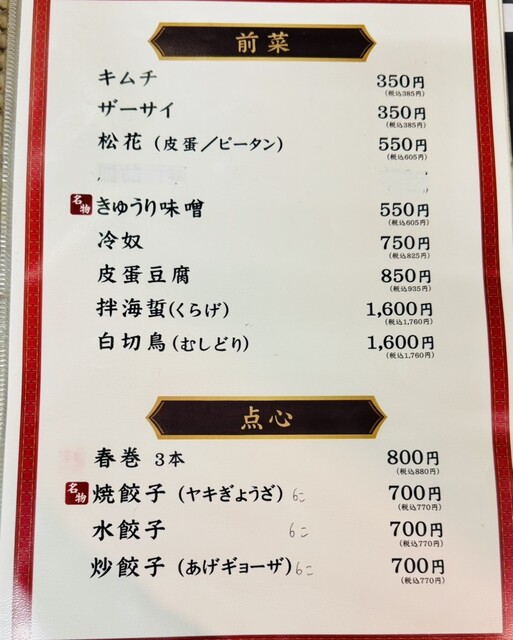 前菜
キムチ 350円
(税込385円)
ザーサイ 350円
(税込385円)
松花(皮蛋／ピータン) 550円
(税込605円)
名物 きゅうり味噌 550円
(税込605円)
冷奴 750円
(税込825円)
皮蛋豆腐 850円
(税込935円)
拌海蜇(くらげ) 1,600円
(税込1,760円)
白切鳥(むしどり) 1,600円
(税込1,760円)
点心
春巻 3本 800円
(税込880円)
名物 焼餃子(ヤキぎょうざ) 6こ 700円
(税込770円)
水餃子 6こ 700円
(税込770円)
炒餃子(あげギョーザ) 6こ 700円
(税込770円)